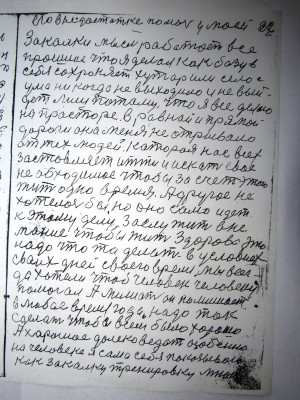 по недостатке помочь у моей 22
Закалки мысл работает все
прошлое что я делал как базу в
себя сохраняет хутарили село с
ума никогда не выходило и не вый-
дет лиш потому, что я все делаю
на просторе. в равнай и прямой
дороги она меня не отрывало
от тех людей. каторая нас всех
заставляет итти и искать свое
не обходимое чтобы за счет этого
жит одно время. А другое не
хотелос бы. но оно само идет
к этому делу. Заслужит вне
мание чтобы жит Здорово это
надо что та делат в условиях
своих дней своего время. мы все
да хотели чтоб человек человеку
помогал. А
в любае время года. надо так
сделат чтобы всем было хорошо
А харошое далеко ведат особенно
на человеке я сам себя показываю
как закалку тренировку